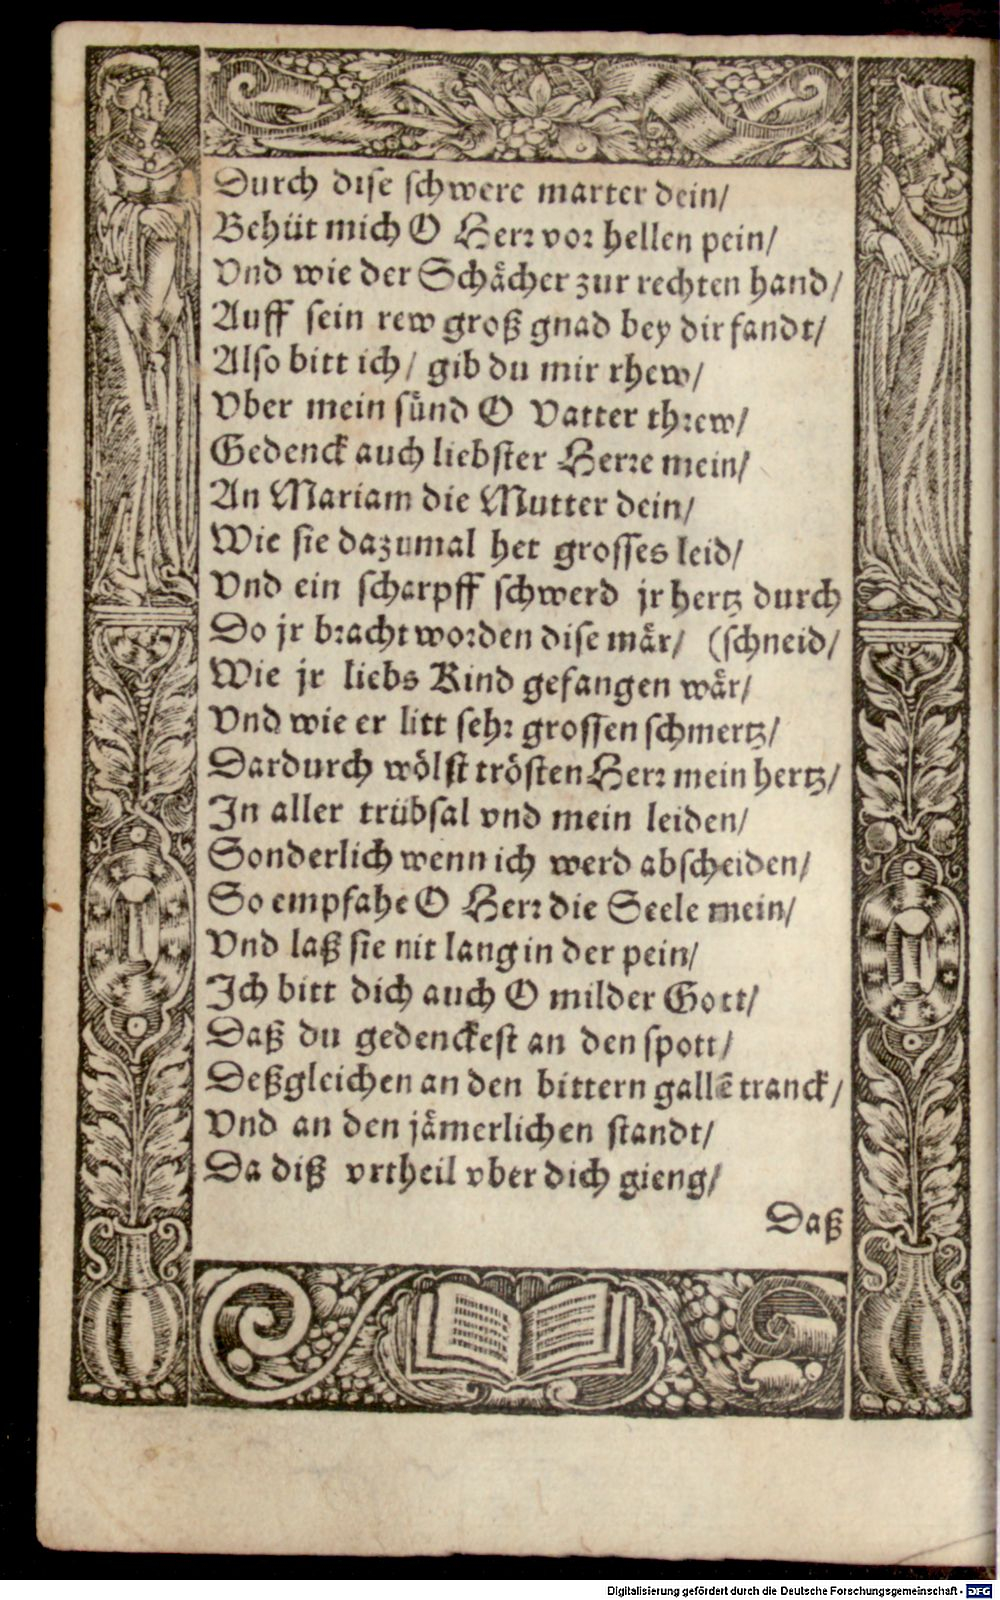 Durch dise schwere marter dein/
Behüt mich O Herr vor hellen pein/
Vnd wie der Schächer zur rechten hand/
Auff sein rew groß gnad bey dir fandt/
Also bitt ich/ gib du mir rhew/
Vber mein sünd O Vatter threw/
Gedenck auch liebster Herre mein/
An Mariam die Mutter dein/
Wie sie dazumal het grosses leid/
Vnd ein scharpff schwerd jr hertz durch
Do jr bracht worden dise mär/ (schneid/
Wie jr liebs Kind gefangen wär/
Vnd wie er litt sehr grossen schmertz/
Dardurch wölst trösten Herr mein hertz/
In aller trübsal vnd mein leiden/
Sonderlich wenn ich werd abscheiden/
So empfahe O Herr die Seele mein/
Vnd laß sie nit lang in der pein/
Ich bitt dich auch O milder Gott/
Daß du gedenckest an den spott/
Deßgleichen an den bittern gallē tranck/
Vnd an den jämerlichen standt/
Da diß vrtheil vber dich gieng/
Daß
Digitalisierung gefördert durch die Deutsche Forschungsgemeinschaft - DFG